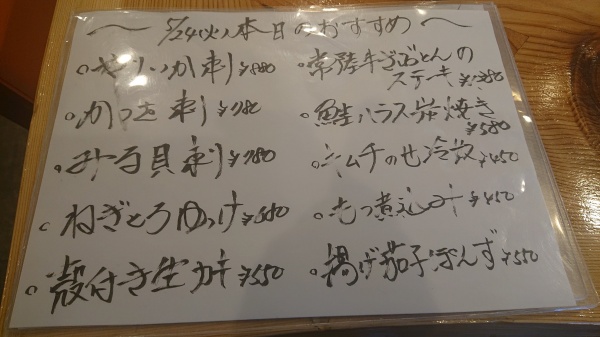 〜5/24(火)本日のおすすめ〜
やりいか刺 ¥880
かつを刺 ¥780
みる貝刺 ¥780
ねぎとろゆっけ ¥580
殻付き生カキ ¥550
常陸牛ざぶとんの
ステーキ
鮭ハラス炭焼き
¥580
キムチのせ冷奴 ¥450
もつ煮込み ¥450
揚げ茄子ぽんず ¥550